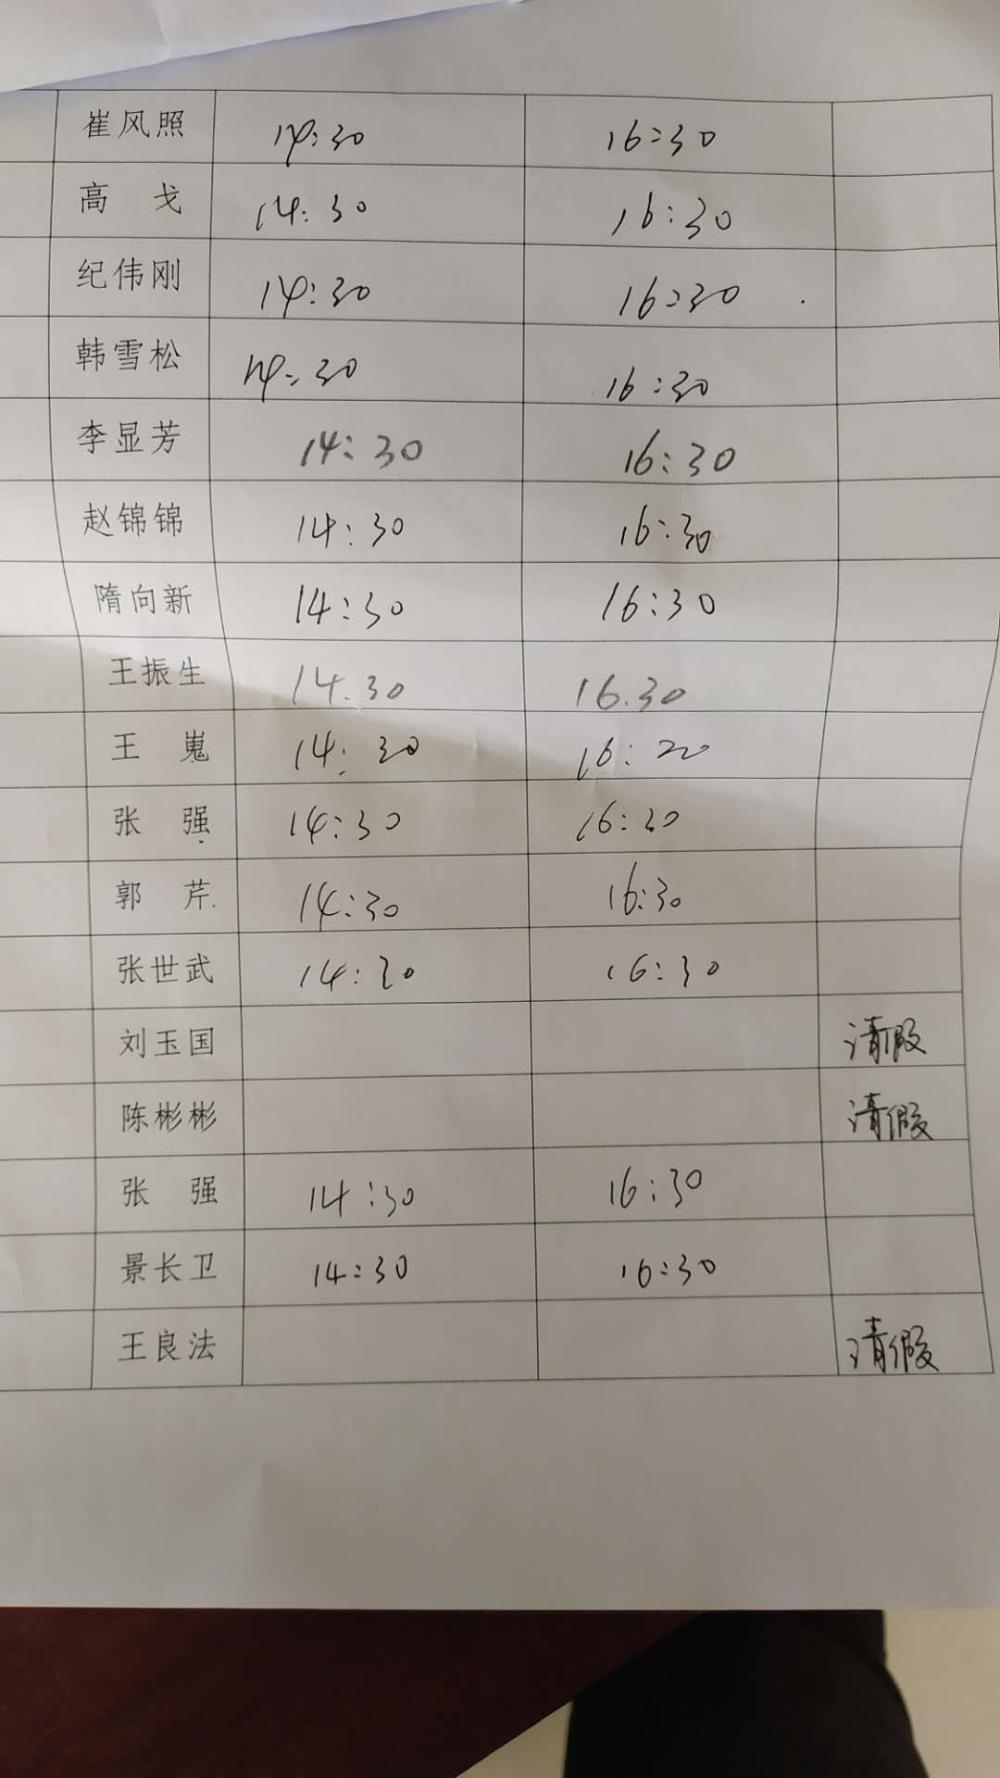 崔风照 14:30 16:30
高 戈 14:30 16:30
纪伟刚 14:30 16:30
韩雪松 14:30 16:30
李显芳 14:30 16:30
赵锦锦 14:30 16:30
隋向新 14:30 16:30
王振生 14.30 16.30
王 嵬 14:30 16:20
张 强 14:30 16:30
郭 芹 14:30 16:30
张世武 14:30 16:30
刘玉国 请假
陈彬彬 请假
张 强 14:30 16:30
景长卫 14:30 16:30
王良法 请假